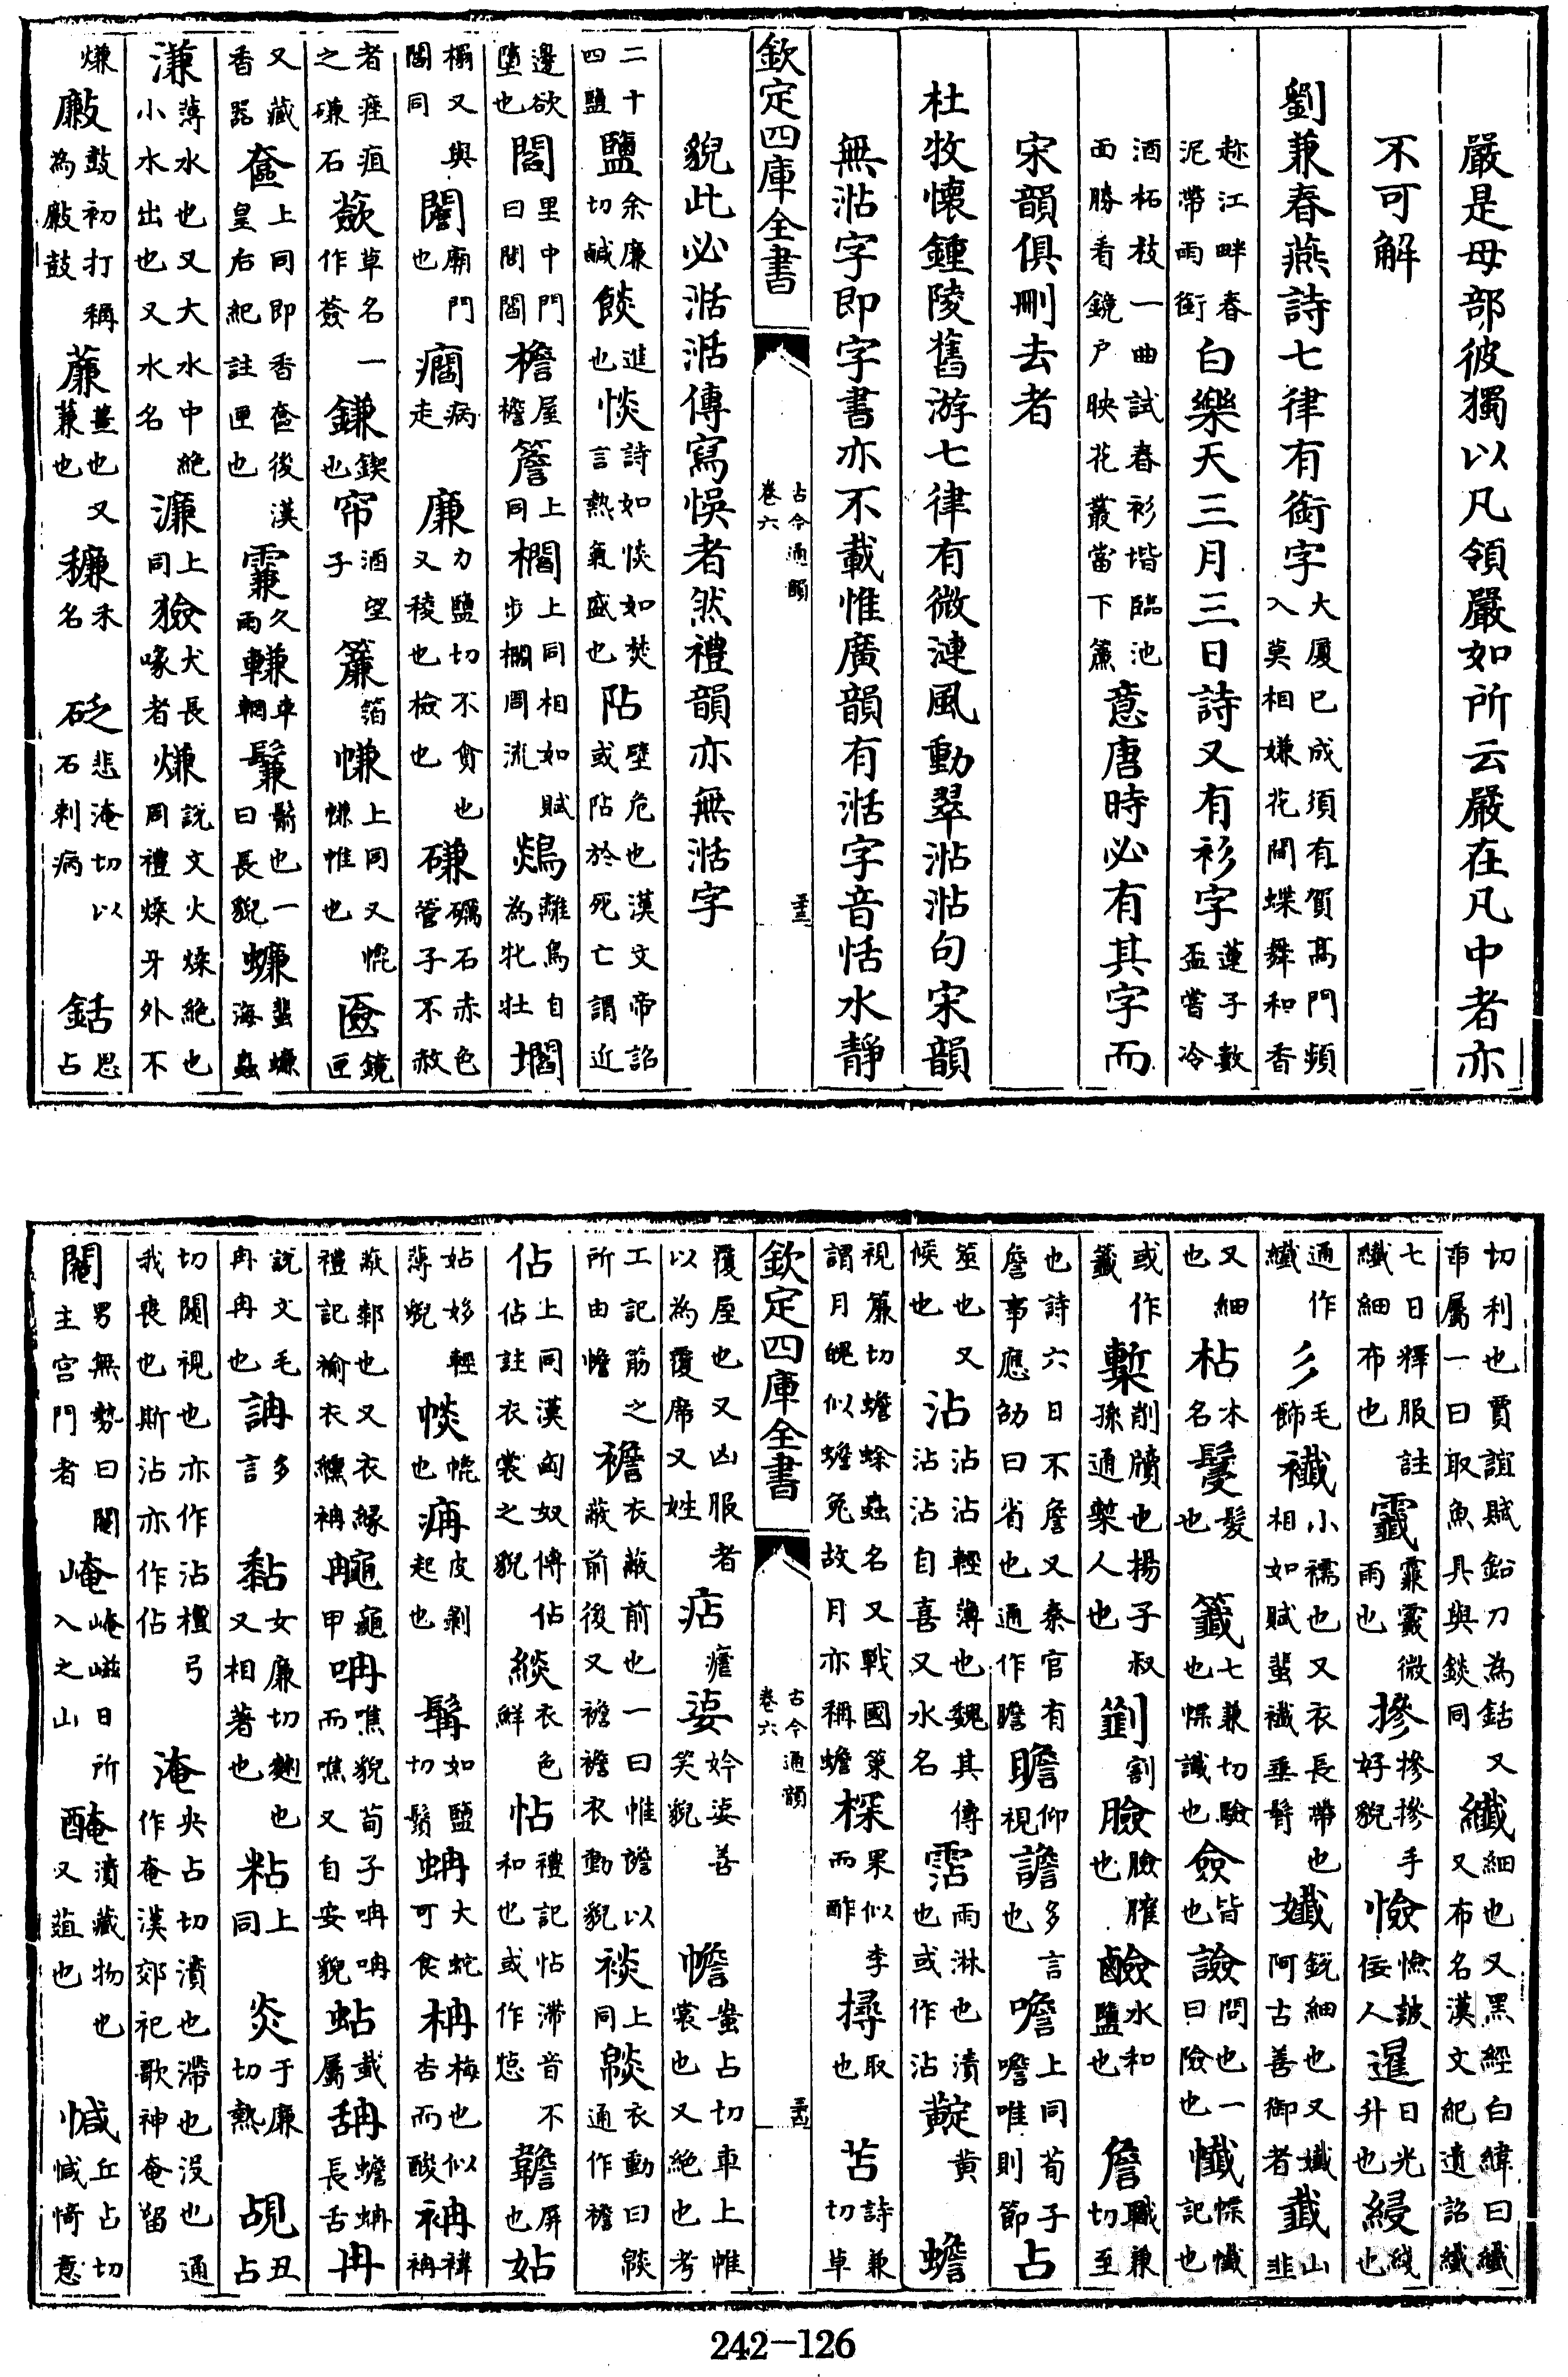 嚴是母部彼獨以凡領嚴如所云嚴在凡中者亦
不可解
劉兼春燕詩七律有銜字大厦已成須有賀高門頻入莫相嫌花間蝶舞和香
趂江畔春泥帶雨銜白樂天三月三日詩又有衫字蓮子數盃嘗冷
酒柘枝一曲試春衫堦臨池面勝看鏡户映花叢當下簾意唐時必有其字而
宋韻俱刪去者
杜牧懷鍾陵舊游七律有微漣風動翠㳓㳓句宋韻
無㳓字即字書亦不載惟廣韻有湉字音恬水靜
欽定四庫全書
古今通韻
卷六
貌此必湉湉傳寫悞者然禮韻亦無湉字
二十四鹽鹽余廉切鹹餤進也惔詩如惔如焚言熱氣盛也阽壁危也漢文帝詔或阽於死亡謂近
邊欲墮也閻里中門曰閻閻檐屋檐簷上同櫩上同相如賦步櫩周流鴆離鳥自為牝牡壛
榻又與閻同閻廟門也癎病走廉力鹽切不貪也又稜也檢也磏礪石赤色管子不赦
者痤疽之磏石薟草名一作蘞鎌鍥也帘酒望子簾箔㡘上同又帷㡘帷也匳鏡匣
又藏香器奩上同即香奩後漢皇后紀註匣也霖久雨䡼車輞鬑鬋也一曰長貌蠊蜚蠊海蟲
溓薄水也又大水中絶小水出也又水名濂上同獫犬長喙者熑說文火煣絶也周禮煣牙外不
熑㪘鼓初打稱為㪘鼓薕薑也又蒹也穅禾名砭悲淹切以石刺病銛思占
切利也賈誼賦鉛刀為銛又臿屬一曰取魚具與錟同纖細也又黑經白緯曰纖又布名漢文紀遺詔纖
七日釋服註纖細布也霺霡霺微雨也摻摻摻手好貌憸憸詖佞人暹日光升也綅綫也
通作纖彡毛飾襳小襦也又衣長帶也相如賦蜚襳垂髾孅銳細也又孅阿古善御者韱山韭
又細也枮木名鬘髮也籤七兼切驗也憡讖也僉皆也譣問也一曰險也懺憡懺記也
或作籖槧削牘也揚子叔孫通槧人也劗割臉臉臛也鹼水和鹽也詹職兼切至
也詩六日不詹又秦官有詹事應劭曰省也通作瞻瞻仰視譫多言也噡上同荀子噡唯則節占
筮也又候也沾沾沾輕薄也魏其傳沾沾自喜又水名霑雨淋也漬也或作沾䵑黃蟾
視簾切蟾蜍蟲名又戰國策謂月魄似蟾兔故月亦稱蟾㮇果似李而酢撏取也苫詩兼切草
欽定四庫全書
古今通韻
卷六
覆屋也又凶服者以為覆席又姓痁瘧㛐妗㛐善笑貌幨蚩占切車上帷裳也又絶也考
工記筋之所由幨襜衣蔽前也一曰惟襜以蔽前後又襜襜衣動貌裧上同緂衣動曰緂通作襜
佔上同漢匈奴傳佔佔註衣裳之貌緂衣色鮮怗禮記怗滯音不和也或作惉韂屏也姑
姑姼輕薄貌㤿帷也痡皮剝起也髯如鹽切鬚蚺大蛇可食枏梅也似杏而酸袡褘袡
蔽郲也又衣緣禮記褕衣纁袡龜龜甲呥噍貌荀子呥呥而噍又自安貌蛅蛓屬舑蟾蚺長舌冉
說文毛冉冉也詽多言黏女廉切麴也又相著也粘上同炎于廉切熱覘丑占
切闚視也亦作沾檀弓我喪也斯沾亦作佔淹央占切漬也滯也沒也通作奄漢郊祀歌神奄留
閹男無勢曰閹主宮門者崦崦嵫日所入之山醃漬藏物也又葅也㦗丘占切㦗㥓意
242-126